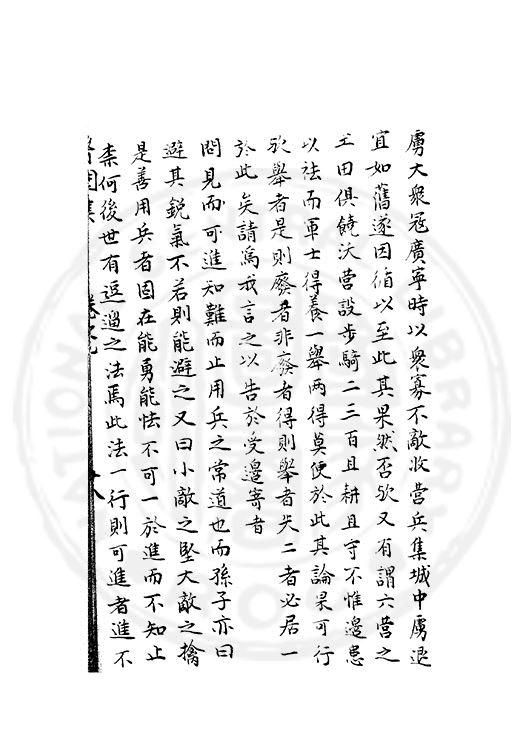 虜大衆冦廣寧時以衆寡不敵收營兵集城中虜退
宜如舊遂因循以至此其果然否欤又有謂六營之
土田俱饒沃營設步騎二三百且耕且守不惟邊患
以祛而軍士得養一舉两得莫便於此其論果可行
欤舉者是則廢者非廢者得則舉者失二者必居一
於此矣請爲我言之以告於受邊寄者
問見而可進知難而止用兵之常道也而孫子亦曰
避其鋭氣不若則能避之又曰小敵之堅大敵之擒
是善用兵者固在能勇能怯不可一於進而不知止
柰何後世有逗遛之法焉此法一行則可進者進不